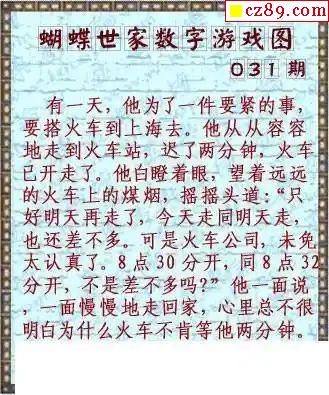 cz89.com
蝴蝶世家数字游戏图
031期
有一天，他为了一件要紧的事，
要搭火车到上海去。他从从容容
地走到火车站，迟了两分钟，火车
已开走了。他白瞪着眼，望着远远
的火车上的煤烟，摇摇头道：“只
好明天再走了，今天走同明天走，
也还差不多。可是火车公司，未免
太认真了。8点30分开，同8点32
分开，不是差不多吗？”他一面说，
一面慢慢地走回家，心里总不很
明白为什么火车不肯等他两分钟。